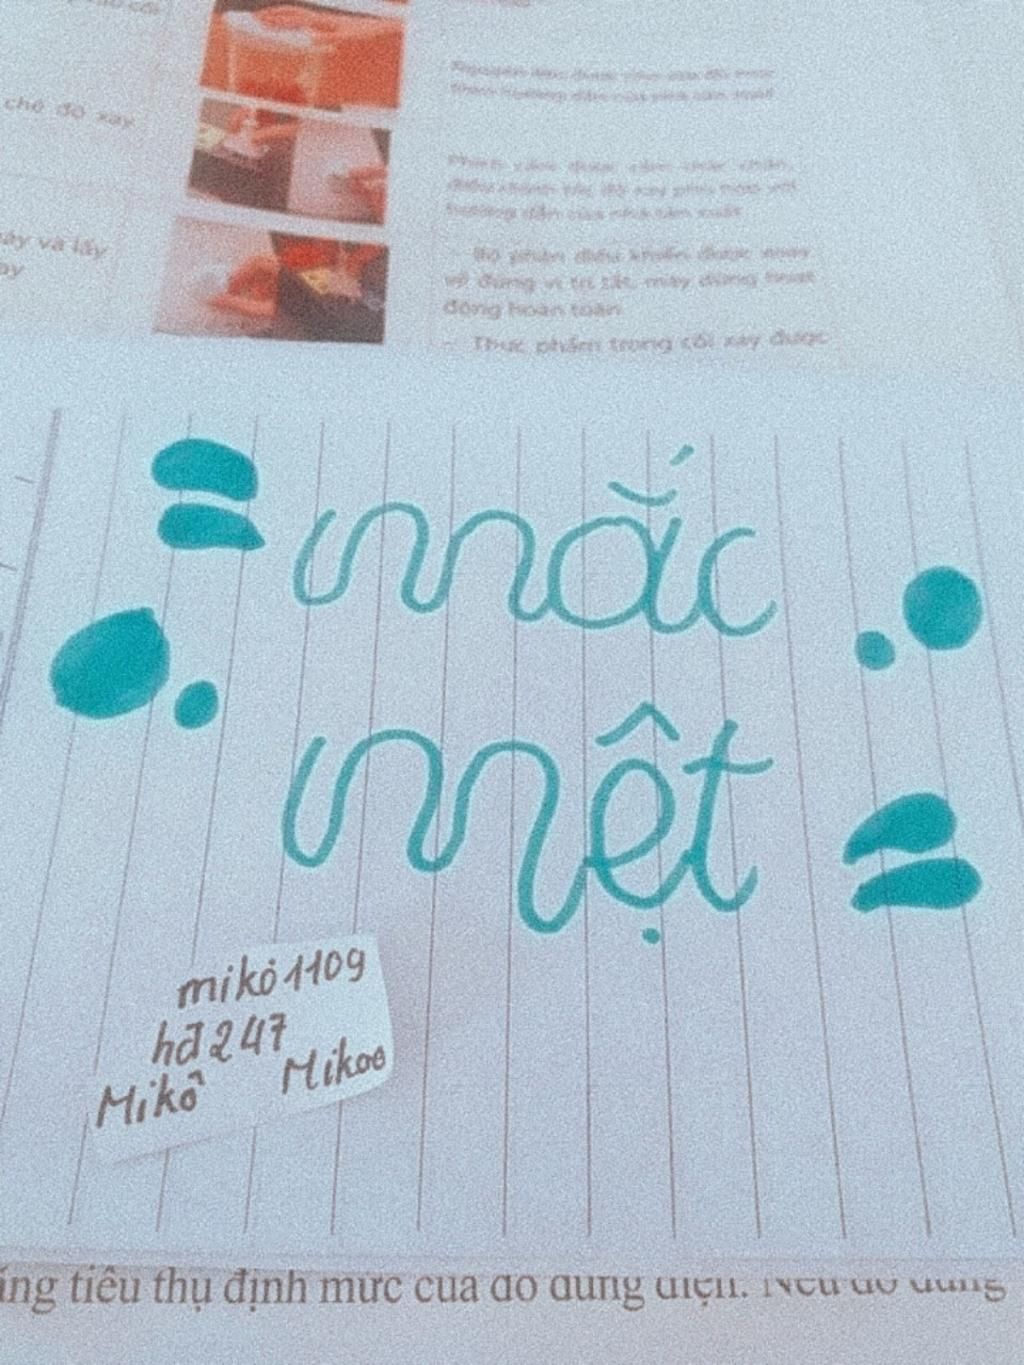 chế độ xay
máy và lấy
ay
Bộ phận điều khiển được xoay
về đúng vị trí tắt, máy dừng hoạt
động hoàn toàn
Thực phẩm trong cối xay được
mắc
mệt
mikó1109
hđ247
Mikô Mikoe
tiêu thụ định mức của đồ dùng điện. Nếu đồ dùng